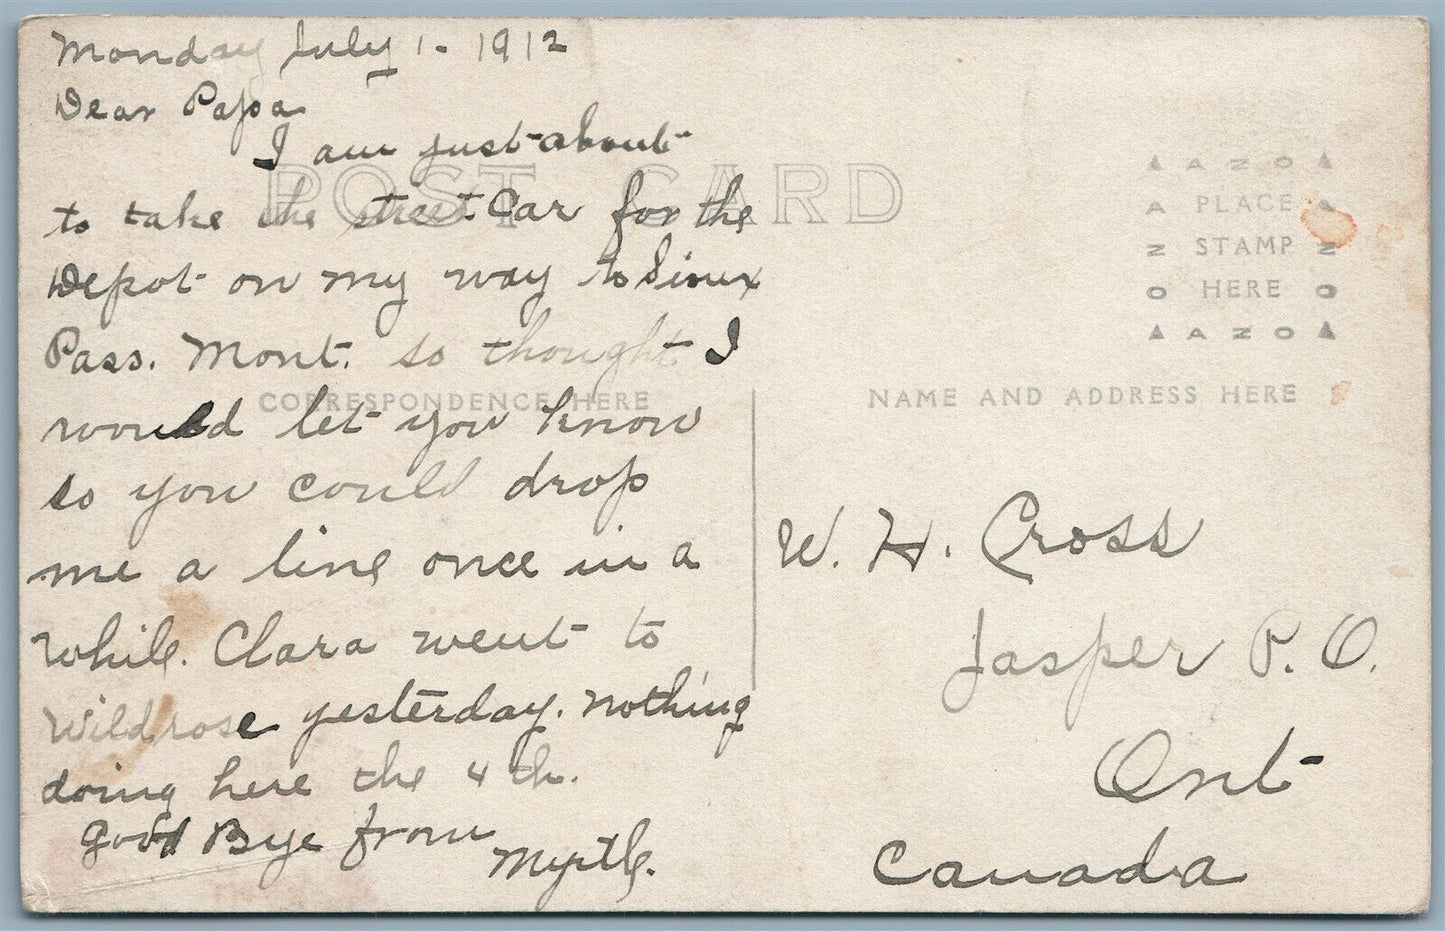 Monday July 1 - 1912
Dear Papa
I am just about
to take the street Car for the
Depot on my way to Sioux
Pass. Mont. so thought I
would let you know
so you could drop
me a line once in a
While. Clara went to
Wildrose yesterday. nothing
doing here the 4 th.
good Bye from
Myrtle.
POST CARD
CORRESPONDENCE HERE
AZO
PLACE
STAMP
HERE
AZO
AZO
AZO
NAME AND ADDRESS HERE
W. H. Cross
Jasper P. O.
Ont
Canada